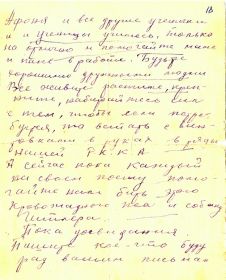 18
Афоня и все другие ученики
и ученицы учитесь только
на отлично и помогайте маме
и папе в работе. Будьте
хорошими дружными людьми
Все живите растите, креп-
ните, набирайтесь сил
с тем, чтобы если потре-
буется, то встать с вин-
товками в руках в ряды
нашей Р.К.К.А.
А сейчас пока каждый
на своем посту помо-
гайте нам бить этого
Кровожадного пса и собаку
Гитлера.
Пока до свидания
Пишите кое-что буду
рад вашим письмам